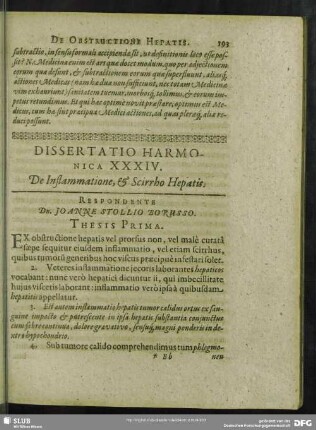 DE OBSTRUCTIONE HEPATIS. 193
subtractio, in sensu formali accipienda sit, ut definitionis loco esse pos-
sit? N. Medicina enim est ars quæ docet modum, quo per adjectionem
eorum quæ desunt, & subtractionem eorum quæ supersunt,
actiones Medicæ (nam hæ duæ non sufficiunt, nec totam Medicinæ
vim exhauriunt) sanitatem tuemur, morbos tollimus, & eorum im-
petus retundimus. Et qui hæc optime novit præstare, optimus est Me-
dicus, cum hæ sint præcipuæ Medici actiones, ad quas pleræque aliæ re-
duci possunt.
DISSERTATIO HARMO-
NICA XXXIV.
De Inflammatione, & Scirrho Hepatis.
RESPONDENTE
DN. JOANNE STOLLIO BORUSSO.
THESIS PRIMA.
EX obstructione hepatis vel prorsus non, vel male curata
sæpe sequitur ejusdem inflammatio, vel etiam scirrhus,
quibus tumoris generibus hoc viscus præcipue infestari solet.
2. Veteres inflammatione jecoris laborantes hepaticos
vocabant: nunc vero hepatici dicuntur ii, qui imbecillitate
hujus visceris laborant: inflammatio vero ipsa à quibusdam
hepatitis appellatur.
3. Est autem inflammatio hepatis tumor calidus ortus ex san-
guine impacto & putrescente in ipsa hepatis substantia conjunctus
cum febre continua, dolore gravativo, sensuque magni ponderis in de-
xtro hypochondrio.
4. Sub tumore calido comprehensimus tum phlegmo-
Bb nen
SLUB
DFG